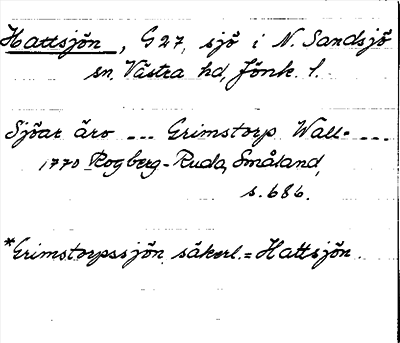 Hattsjön, G27, sjö i N. Sandsjö
sn, Västra hd, Jönk. l.
Sjöar äro --- Grimstorp Wall- ---
1770 Rogberg-Ruda, Småland,
s. 686.
*Grimstorpssjön säkerl. = Hattsjön.